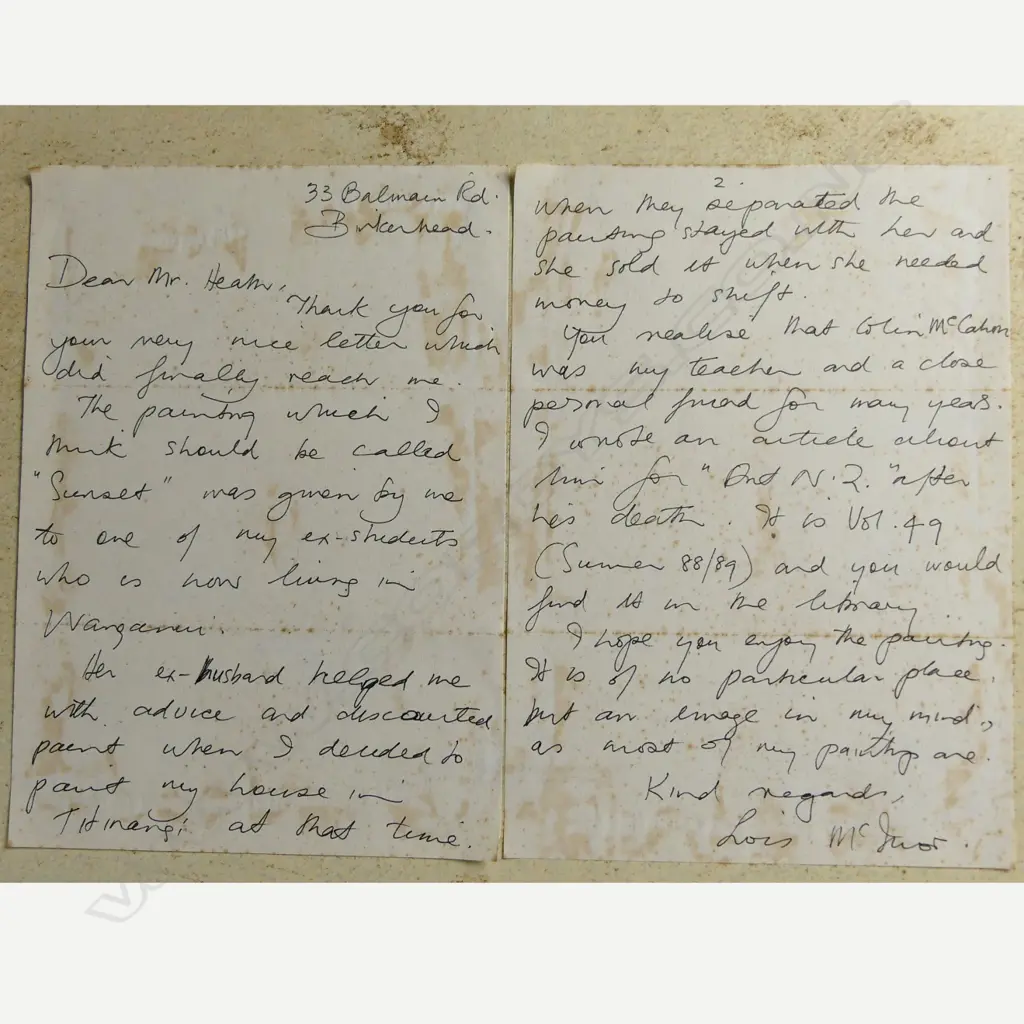 33 Balmain Rd.
Birkenhead.
Dear Mr. Heath,
Thank you for
your very nice letter which
did finally reach me.
The painting which I
think should be called
"Sunset" was given by me
to one of my ex-students
who is now living in
Wanganui.
Her ex-husband helped me
with advice and discounted
paint when I decided to
paint my house in
Titirangi at that time.
2.
when they separated the
painting stayed with her and
she sold it when she needed
money to shift.
You realise that Colin McCahon
was my teacher and a close
personal friend for many years.
I wrote an article about
him for "Art N.Z." after
his death. It is Vol. 49
(Summer 88/89) and you would
find it in the library.
I hope you enjoy the painting.
It is of no particular place,
but an image in my mind,
as most of my paintings are.
Kind regards,
Lois McIvor.